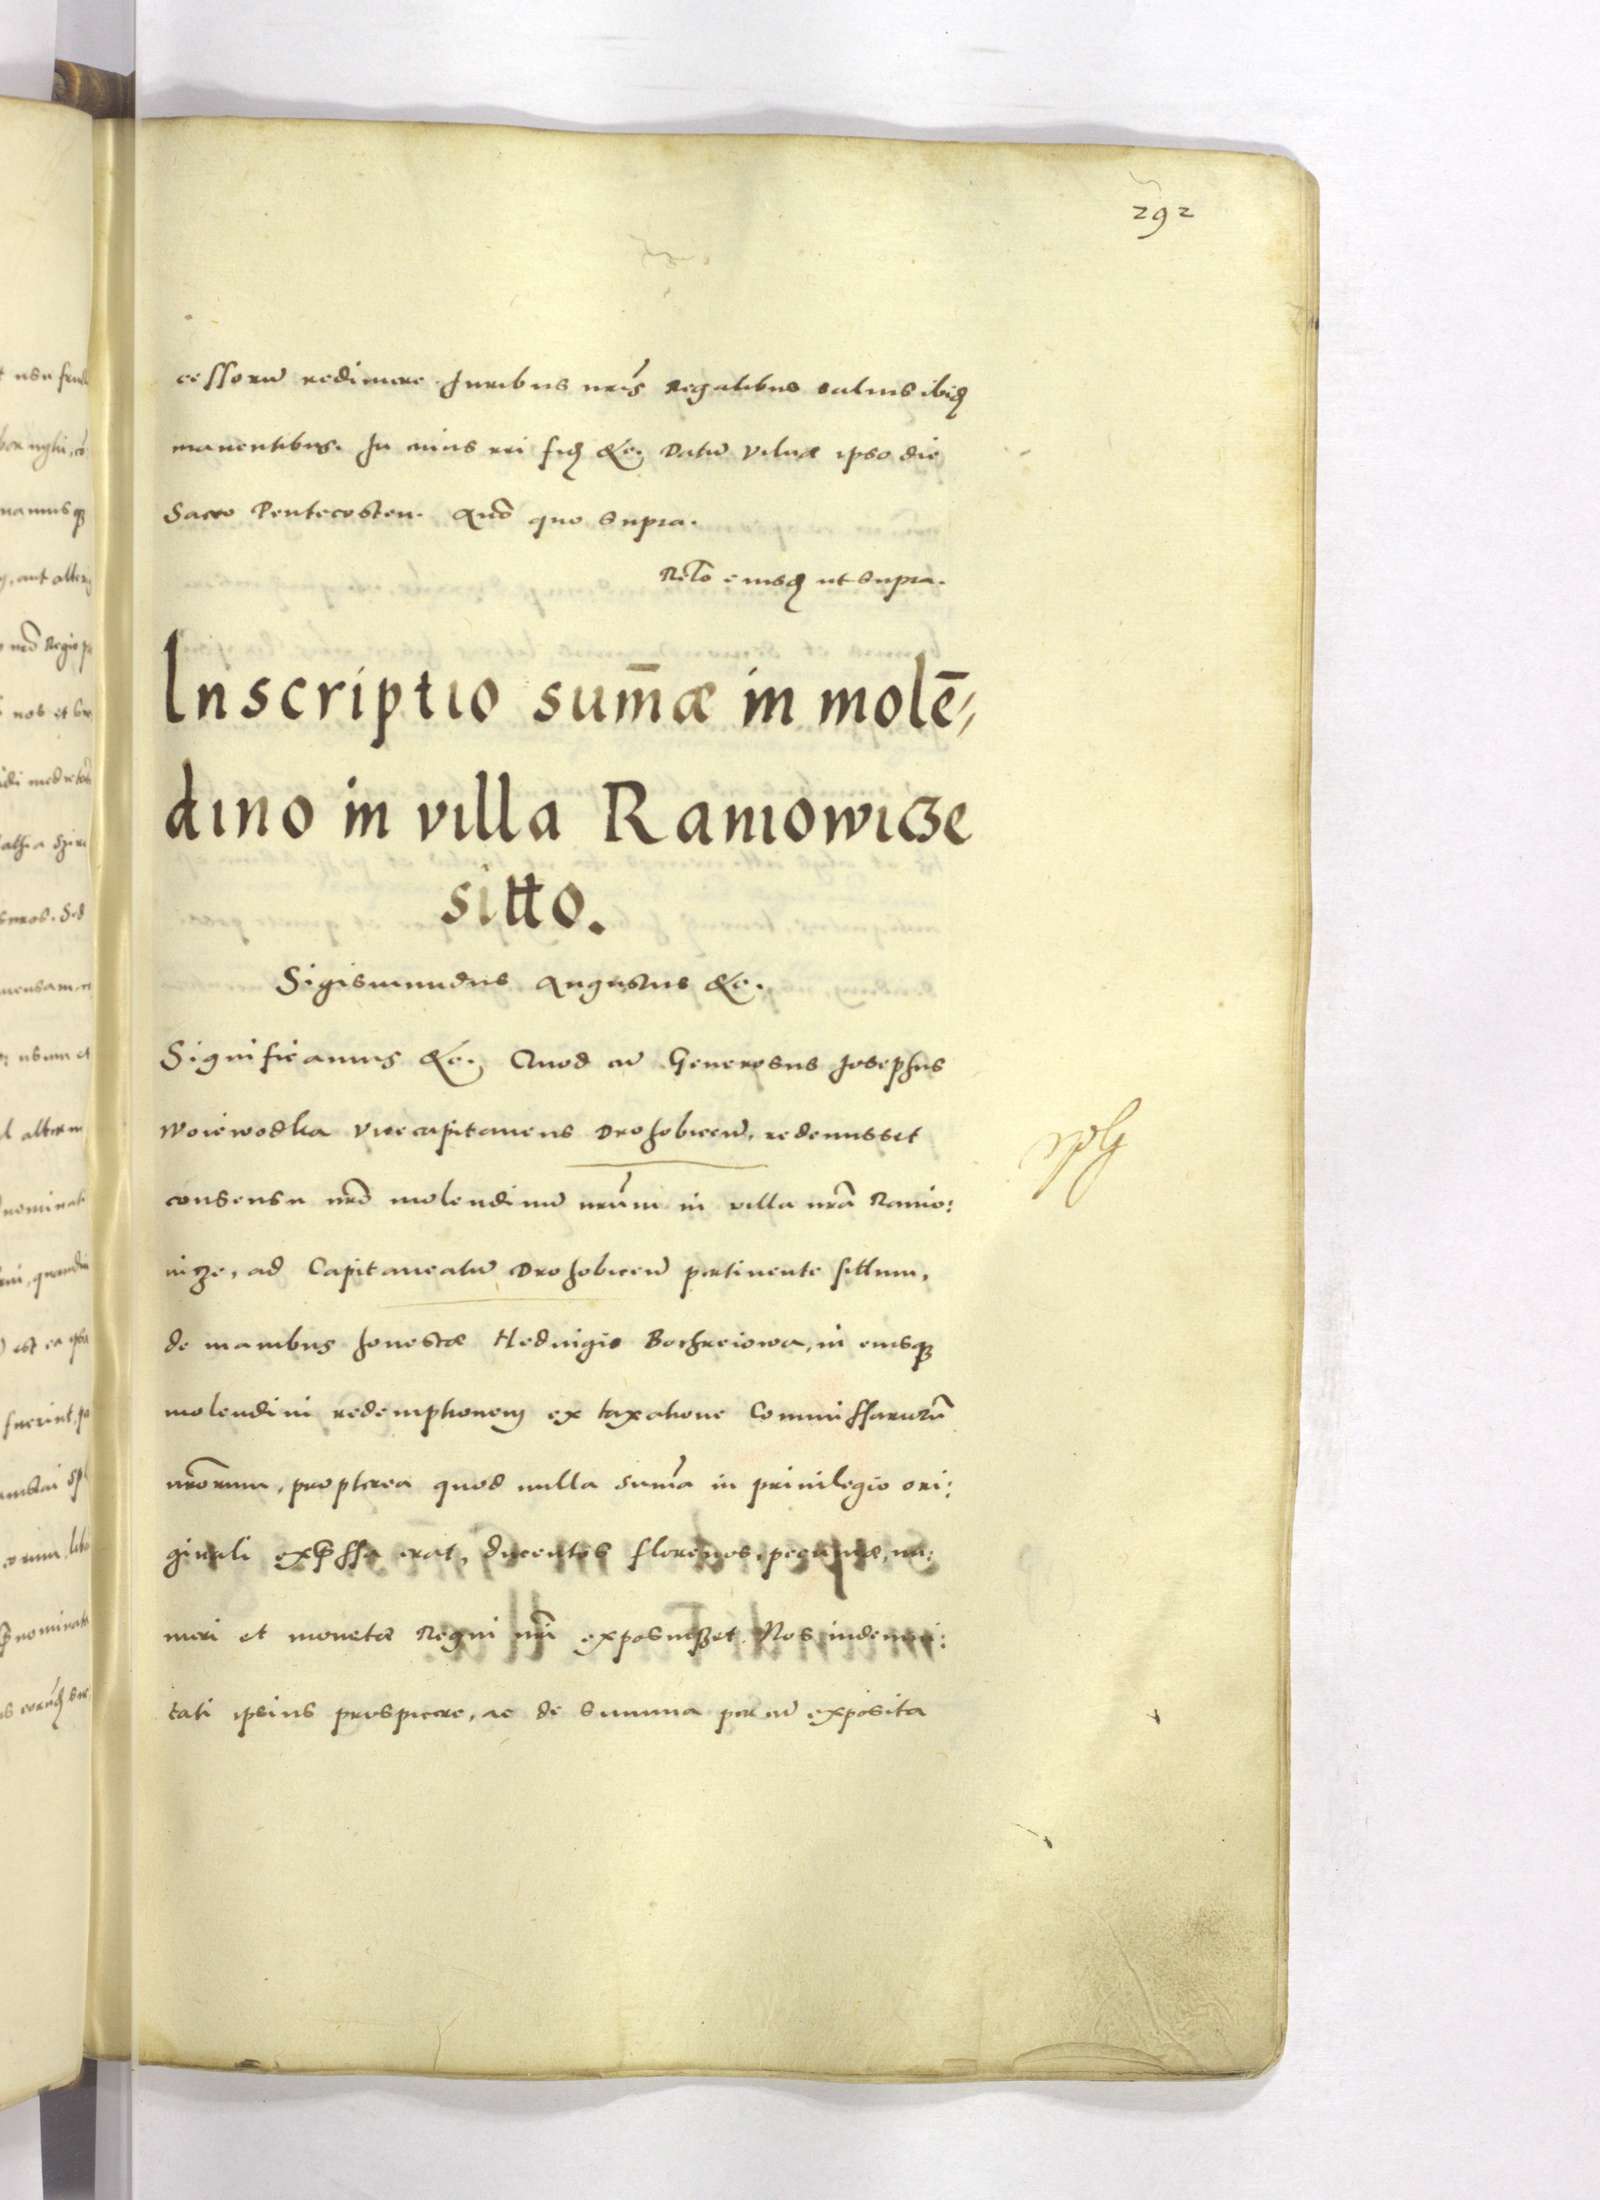 292
cessorũ redimere Juribus nr̃is Regalibus saluis ibidẽ
manentibus. In cuius rei fidẽ &c. Datũ Vilnæ ipso die
Sacro Pentecosten. Anõ quo supra.
Relõ eiusdẽ ut supra.
Inscriptio sum̃æ in molẽ,
dino in villa Raniowicze
sitto.
Sigismundus Augustus &c.
Significamus &c. Quod cũ Generosus Josephus
Woiewodka Vicecapitaneus Drohobicen̄, redemisset
consensu nrõ molendinũ nrũm in villa nrã Ranio:
uicze, ad Capitaneatũ Drohobicen̄ pertinente sittum,
de manibus honestæ Heduigis Bochreiowa, in eiusq3
molendini redemptionem ex taxatione Commissariorũ
nrõrum, propterea quod nulla sum̃a in priuilegio ori:
ginali exp̃ssa erat, ducentos florenos, pecuniæ, nu:
meri et monetæ Regni nrĩ exposuisset. Nos indemni:
tati ipsius prospicere, ac de summa per eũ exposita